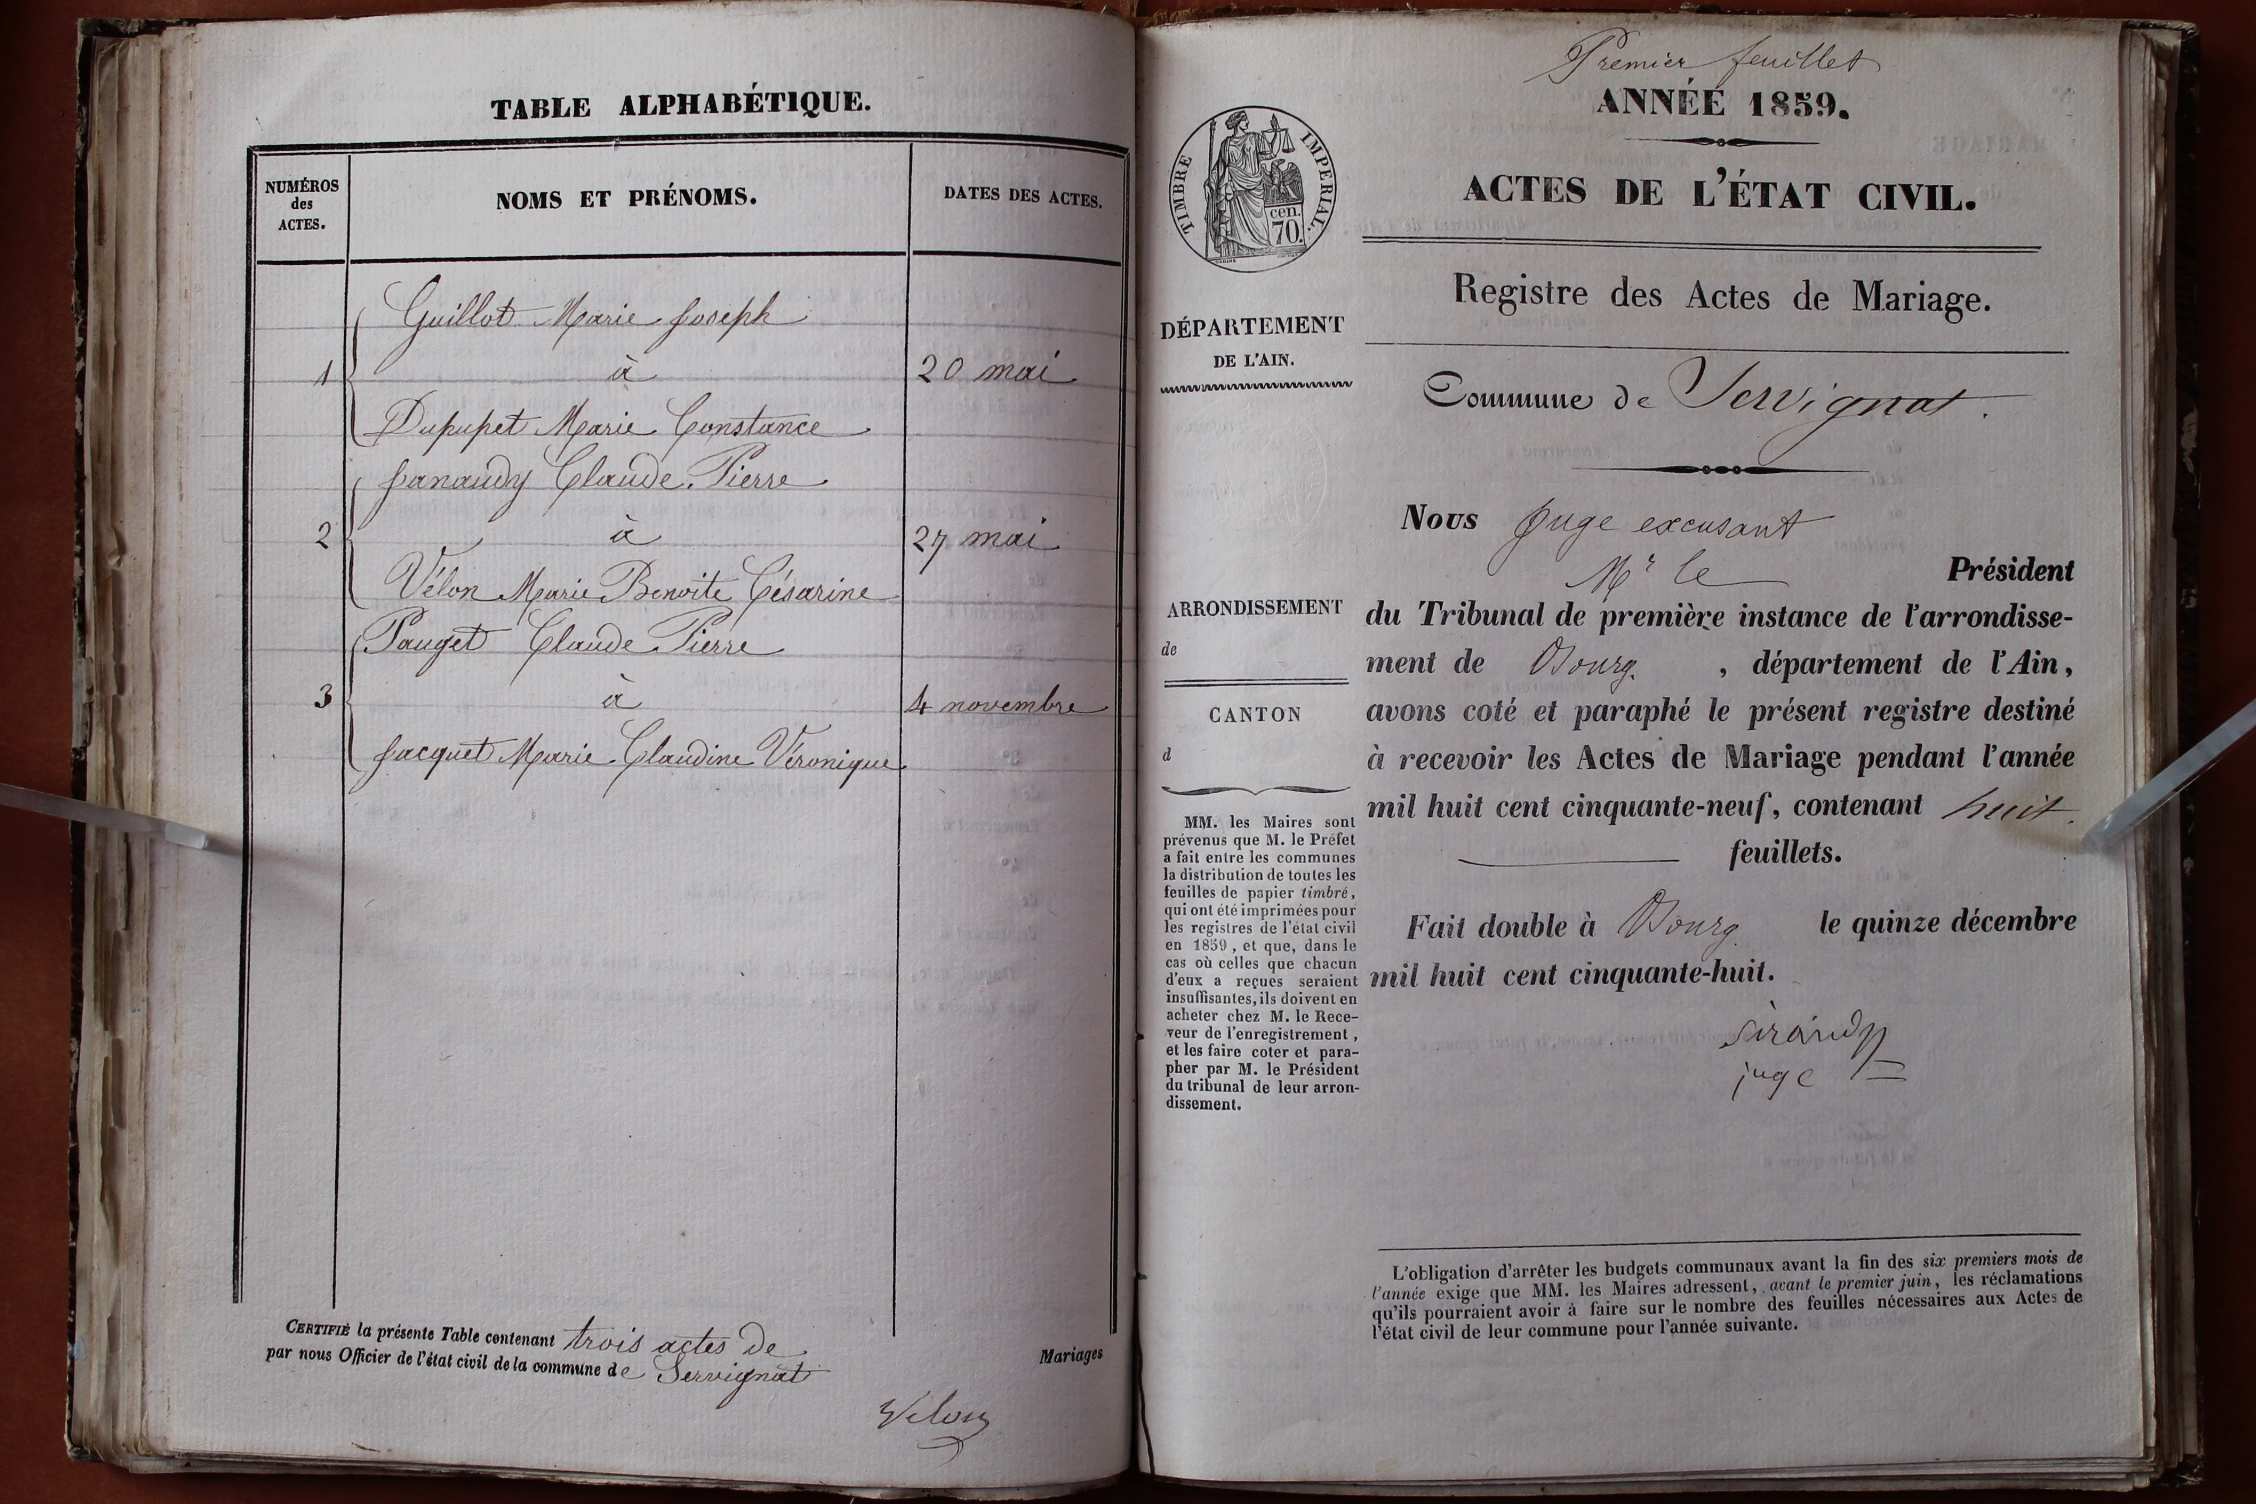 TABLE ALPHABÉTIQUE.
NUMÉROS
des
ACTES.
NOMS ET PRÉNOMS.
DATES DES ACTES.
Guillot Marie Joseph
1 à 20 mai
Dupupet Marie Constance
Janaudy Claude Pierre
2 à 27 mai
Vélon Marie Benoite Césarine
Pauget Claude Pierre
3 à 4 novembre
Jacquet Marie Claudine Véronique
CERTIFIÉ la présente Table contenant trois actes de Mariages
par nous Officier de l'état civil de la commune de Servignat
Velon
Premier feuillet
ANNÉE 1859.
ACTES DE L'ÉTAT CIVIL.
Registre des Actes de Mariage.
Commune de Servignat.
TIMBRE IMPERIAL.
cen.
70.
DÉPARTEMENT
DE L'AIN.
ARRONDISSEMENT
de
CANTON
d
MM. les Maires sont
prévenus que M. le Préfet
a fait entre les communes
la distribution de toutes les
feuilles de papier timbré,
qui ont été imprimées pour
les registres de l'état civil
en 1859, et que, dans le
cas où celles que chacun
d'eux a reçues seraient
insuffisantes, ils doivent en
acheter chez M. le Rece-
veur de l'enregistrement,
et les faire coter et para-
pher par M. le Président
du tribunal de leur arron-
dissement.
Nous Juge excusant
Mr le Président
du Tribunal de première instance de l'arrondisse-
ment de Bourg. , département de l'Ain,
avons coté et paraphé le présent registre destiné
à recevoir les Actes de Mariage pendant l'année
mil huit cent cinquante-neuf, contenant huit.
feuillets.
Fait double à Bourg le quinze décembre
mil huit cent cinquante-huit.
Sirandy
juge
L'obligation d'arrêter les budgets communaux avant la fin des six premiers mois de
l'année exige que MM. les Maires adressent, avant le premier juin, les réclamations
qu'ils pourraient avoir à faire sur le nombre des feuilles nécessaires aux Actes de
l'état civil de leur commune pour l'année suivante.